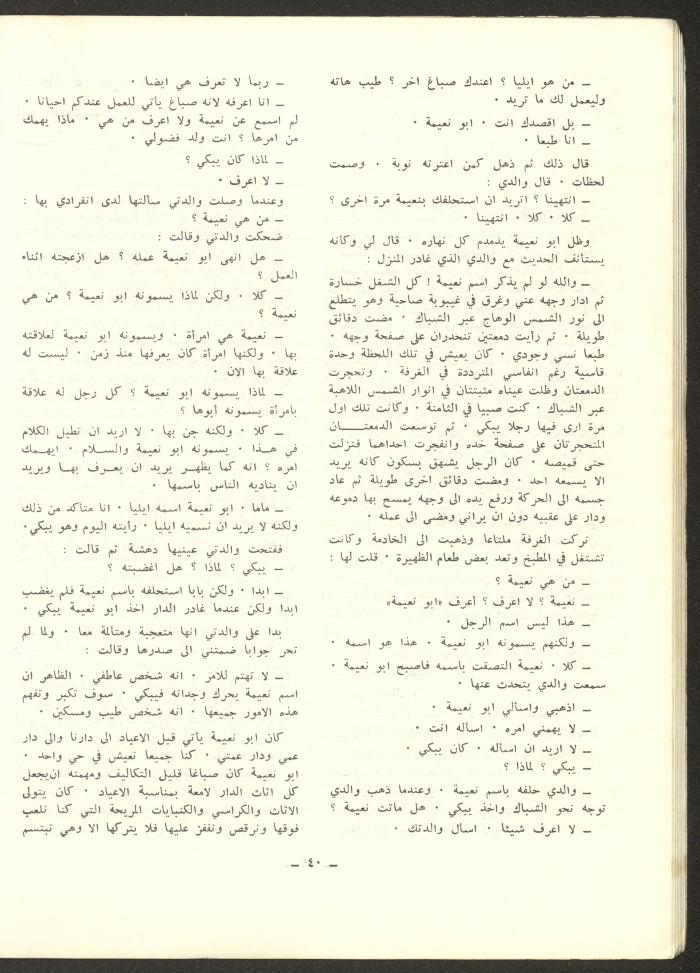 ـ من هو ايليا ؟ اعندك صباغ اخر ؟ طيب هاته
وليعمل لك ما تريد ٠
ـ بل اقصدك انت ٠ ابو نعيمة ٠
ـ انا طبعا ٠
قال ذلك ثم ذهل كمن اعترته نوبة ٠ وصمت
لحظات ٠ قال والدي :
ـ انتهينا ؟ اتريد ان استحلفك بنعيمة مرة اخرى ؟
ـ كلا ٠ كلا ٠ انتهينا ٠
وظل ابو نعيمة يدمدم كل نهاره ٠ قال لي وكانه
يستأنف الحديث مع والدي الذي غادر المنزل :
ـ والله لو لم يذكر اسم نعيمة ! كل الشغل خسارة
ثم ادار وجهه عني وغرق في غيبوبة صاحية وهو يتطلع
الى نور الشمس الوهاج عبر الشباك ٠ مضت دقائق
طويلة ٠ ثم رأيت دمعتين تنحدران على صفحة وجهه ٠
طبعا نسي وجودي ٠ كان يعيش في تلك اللحظة وحدة
قاسية رغم انفاسي المترددة في الغرفة ٠ وتحجرت
الدمعتان وظلت عيناه مثبتتان في انوار الشمس اللاهبة
عبر الشباك ٠ كنت صبيا في الثامنة ٠ وكانت تلك اول
مرة ارى فيها رجلا يبكي ٠ ثم توسعت الدمعتــــان
المتحجرتان على صفحة خده وانفجرت احداهما فنزلت
حتى قميصه ٠ كان الرجل يشهق بسكون كانه يريد
الا يسمعه احد ٠ ومضت دقائق اخرى طويلة ثم عاد
جسمه الى الحركة ورفع يده الى وجهه يمسح بها دموعه
ودار على عقبيه دون ان يراني ومضى الى عمله ٠
تركت الغرفة ملتاعا وذهبت الى الخادمة وكانت
تشتغل في المطبخ وتعد بعض طعام الظهيرة ٠ قلت لها :
ـ من هي نعيمة ؟
ـ نعيمة ؟ لا اعرف ؟ أعرف «ابو نعيمة»
ـ هذا ليس اسم الرجل ٠
ـ ولكنهم يسمونه ابو نعيمة ٠ هذا هو اسمه ٠
ـ كلا ٠ نعيمة التصقت باسمه فاصبح ابو نعيمة ٠
سمعت والدي يتحدث عنها ٠
ـ اذهبي واسألي ابو نعيمة ٠
ـ لا يهمني امره ٠ اسأله انت ٠
ـ لا اريد ان اسأله ٠ كان يبكي ٠
ـ يبكي ؟ لماذا ؟
ـ والدي حلفه باسم نعيمة ٠ وعندما ذهب والدي
توجه نحو الشباك واخذ يبكي ٠ هل ماتت نعيمة ؟
ـ لا اعرف شيئا ٠ اسال والدتك ٠
ـ ربما لا تعرف هي ايضا ٠
ـ انا اعرفه لانه صباغ يأتي للعمل عندكم احيانا ٠
لم اسمع عن نعيمة ولا اعرف من هي ٠ ماذا يهمك
من امرها ؟ انت ولد فضولي ٠
ـ لماذا كان يبكي ؟
ـ لا اعرف ٠
وعندما وصلت والدتي سالتها لدى انفرادي بها :
ـ من هي نعيمة ؟
ضحكت والدتي وقالت :
ـ هل انهى ابو نعيمة عمله ؟ هل ازعجته اثناء
العمل ؟
ـ كلا ٠ ولكن لماذا يسمونه ابو نعيمة ؟ من هي
نعيمة ؟
ـ نعيمة هي امرأة ٠ ويسمونه ابو نعيمة لعلاقته
بها ٠ ولكنها امرأة كان يعرفها منذ زمن ٠ ليست له
علاقة بها الان ٠
ـ لماذا يسمونه ابو نعيمة ؟ كل رجل له علاقة
بامرأة يسمونه أبوها ؟
ـ كلا ٠ ولكنه جن بها ٠ لا اريد ان تطيل الكلام
في هــذا ٠ يسمونه ابو نعيمة والســلام ٠ ايهــمك
امره ؟ انه كما يظهــر يريد ان يعــرف بهــا ويريد
ان يناديه الناس باسمها ٠
ـ ماما ٠ ابو نعيمة اسمه ايليا ٠ انا متاكد من ذلك
ولكنه لا يريد ان نسميه ايليا ٠ رأيته اليوم وهو يبكي٠
ففتحت والدتي عينيها دهشة ثم قالت :
ـ يبكي ؟ لماذا ؟ هل اغضبته ؟
ـ ابدا ٠ ولكن بابا استحلفه باسم نعيمة فلم يغضب
ابدا ولكن عندما غادر الدار اخذ ابو نعيمة يبكي ٠
بدا على والدتي انها متعجبة ومتالمة معا ٠ ولما لم
تحر جوابا ضمتني الى صدرها وقالت :
ـ لا تهتم للامر ٠ انه شخص عاطفي ٠ الظاهر ان
اسم نعيمة يحرك وجدانه فيبكي ٠ سوف تكبر وتفهم
هذه الامور جميعها ٠ انه شخص طيب ومسكين ٠
كان ابو نعيمة يأتي قبل الاعياد الى دارنا والى دار
عمي ودار عمتي ٠ كنا جميعا نعيش في حي واحد ٠
ابو نعيمة كان صباغا قليل التكاليف ومهمته ان‌يجعل
كل اثاث الدار لامعة بمناسبة الاعياد ٠ كان يتولى
الاثاث والكراسي والكنبايات المريحة التي كنا نلعب
فوقها ونرقص ونقفز عليها فلا يتركها الا وهي تبتسم
ـ ٤٠ ـ